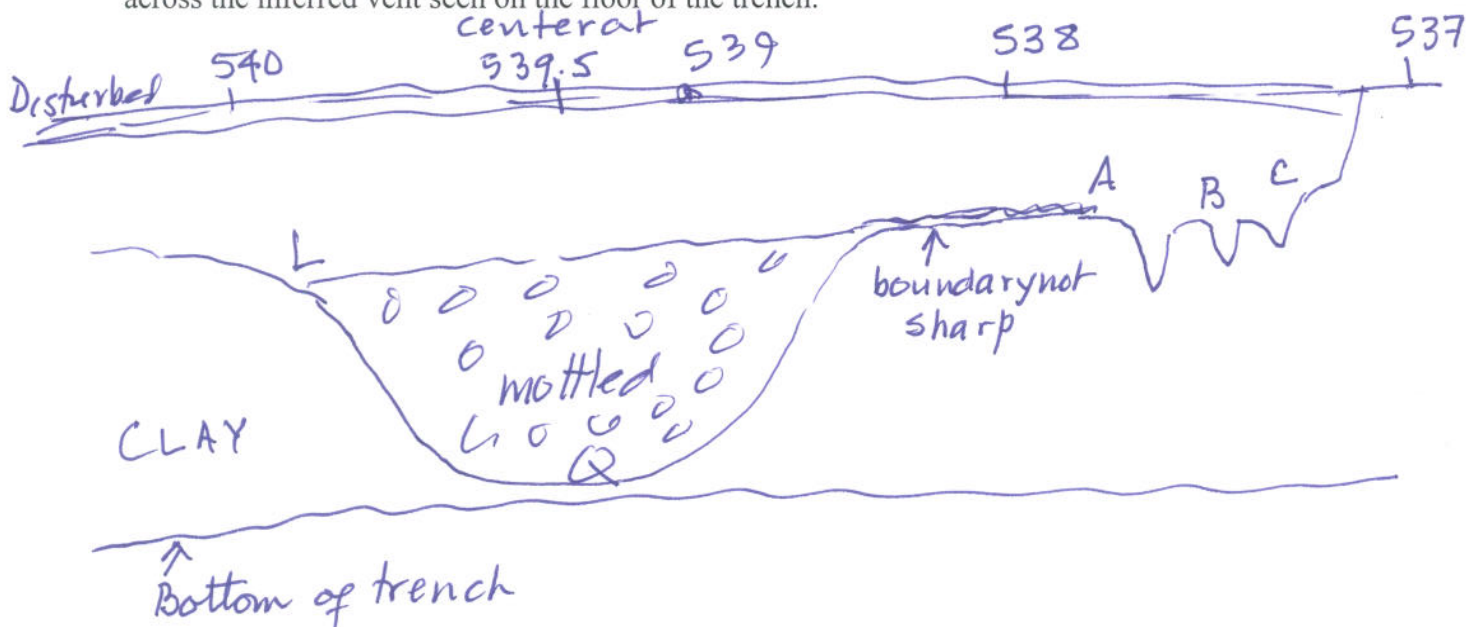 across the inferred vent seen on the floor of the trench.
center at
Disturbed 540 539.5 539 538 537
A B C
L
boundary not
sharp
mottled
CLAY
Q
Bottom of trench